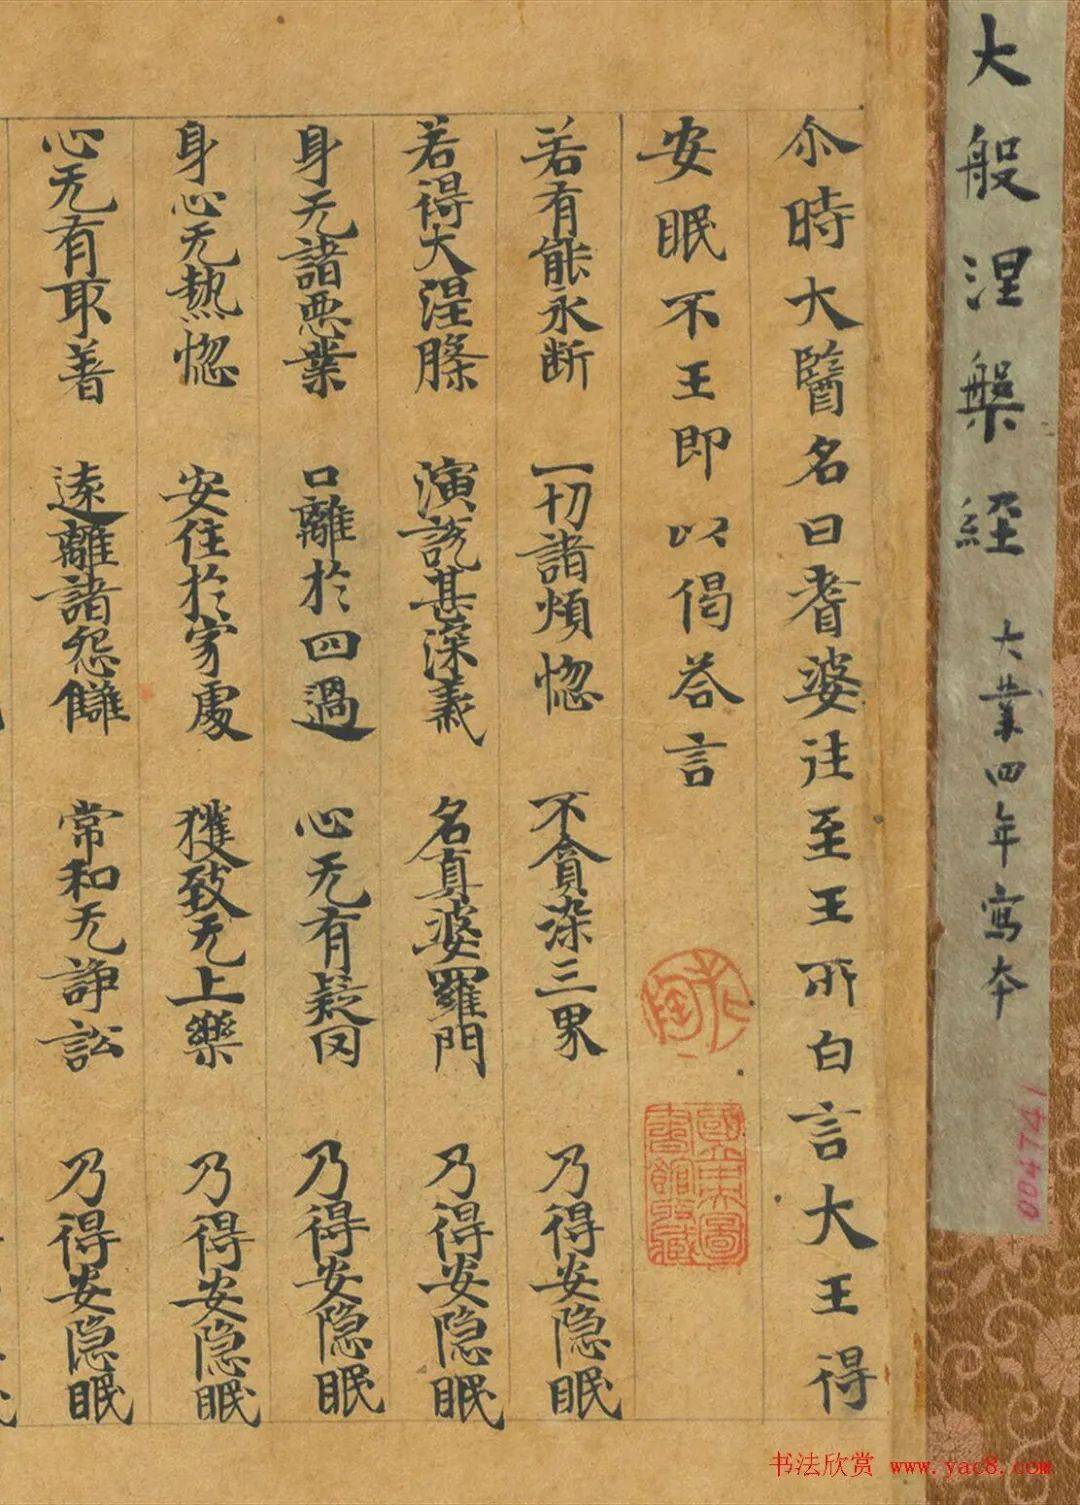 大般涅槃経 大業四年寫本
004741
尒時大醫名曰耆婆往至王所白言大王得
安眠不王即以偈荅言
若有能永断 一切諸煩惚 不貪染三界 乃得安隐眠
若得大涅膝 演説甚深義 名真婆羅門 乃得安隐眠
身无諸悪業 口離於四過 心无有疑囚 乃得安隐眠
身心无热惚 安住於家處 獲致无上樂 乃得安隐眠
心无有取著 遠離諸怨讎 常和无諍訟 乃得安隐眠
國立中央圖書館收藏
书法欣赏 www.yac8.com